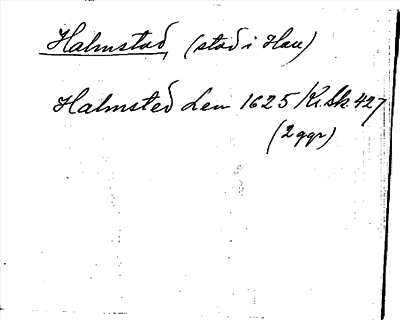 Halmstad, (stad i Hall)
Halmsted den 1625 Kr. Sk 427
(2 ggr)